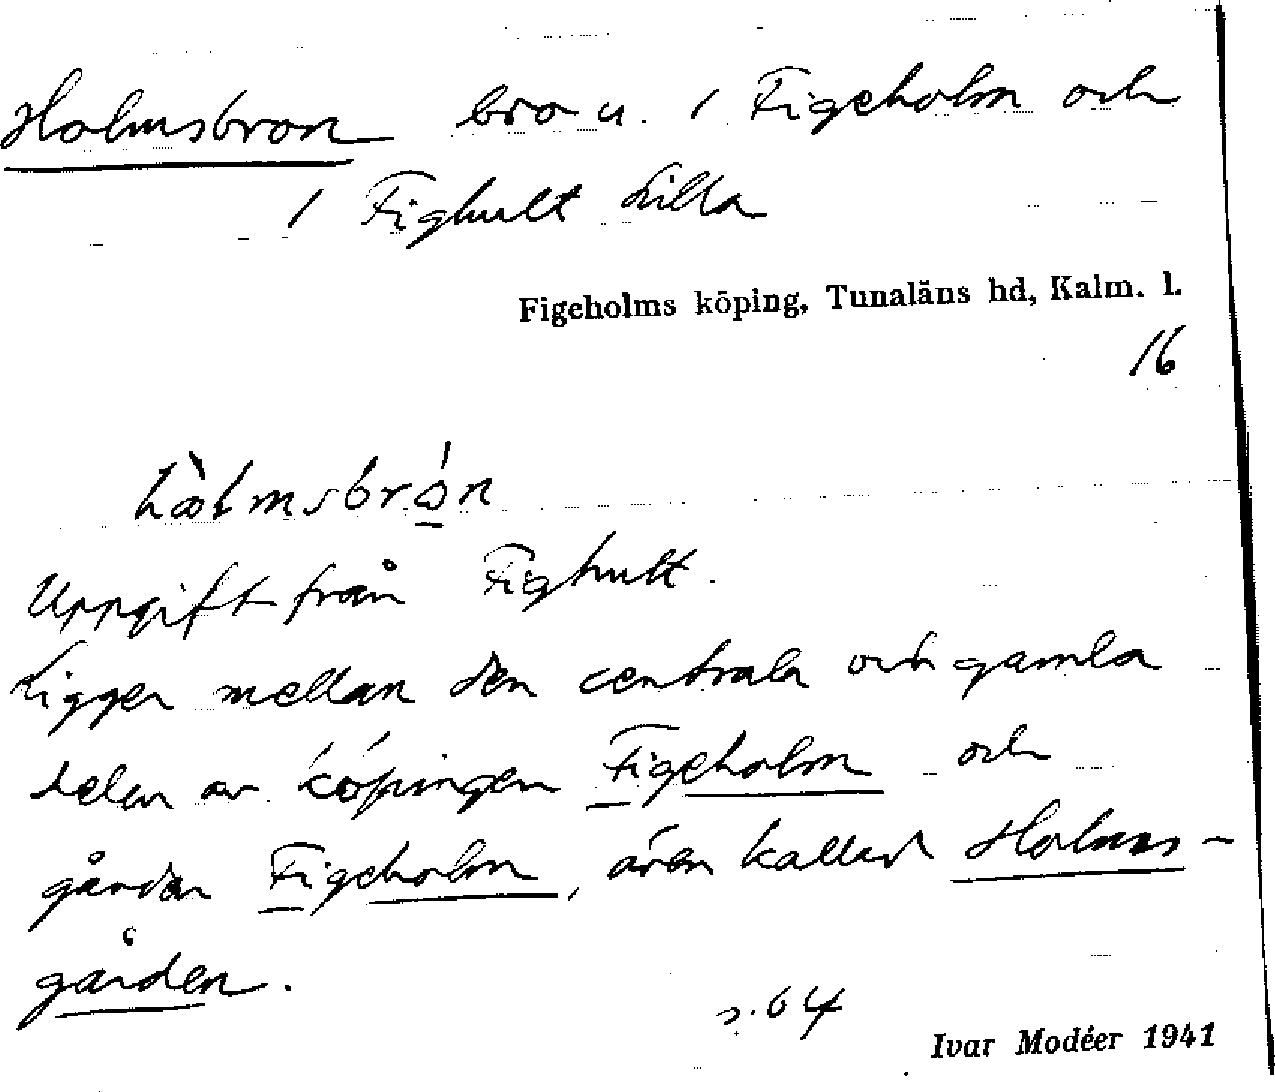 Holmsbron bro u. 1 Figeholm och
1 Fighult Lilla
Figeholms köping, Tunaläns hd, Kalm. l.
16
hòlmsbrón
Uppgift från Fighult.
Ligger mellan den centrala och gamla
delen av köpingen Figeholm och
gården Figeholm, även kallad Holms-
gården.
s. 64
Ivar Modéer 1941